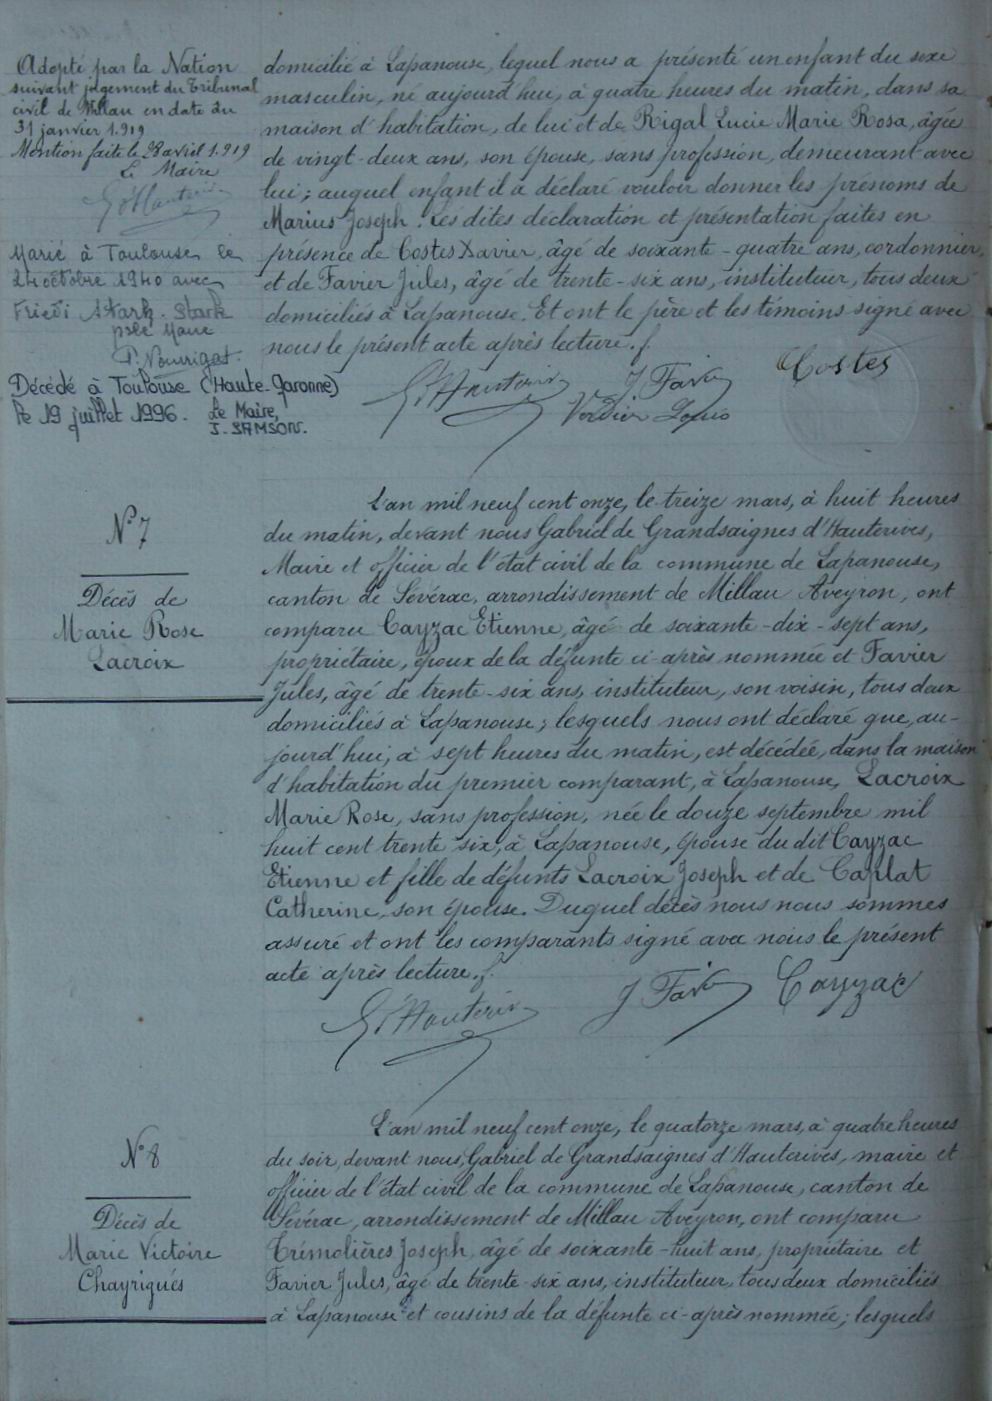 Adopté par la Nation
suivant jugement du Tribunal
civil de Millau en date du
31 janvier 1.919
Mention faite le 28 avril 1.919
Le Maire
G d'Hauterives
Marié à Toulouse le
24 octobre 1940 avec
Friedi Stark. Stark
Décédé à Toulouse (Haute-Garonne)
le 19 juillet 1996. Le Maire,
J. SAMSON.
domicilié à Lapanouse, lequel nous a présenté un enfant du sexe
masculin, né aujourd'hui, à quatre heures du matin, dans sa
maison d'habitation, de lui et de Rigal Lucie Marie Rosa, âgée
de vingt-deux ans, son épouse, sans profession, demeurant avec
lui; auquel enfant il a déclaré vouloir donner les prénoms de
Marius Joseph. Les dites déclaration et présentation faites en
présence de Costes Xavier, âgé de soixante-quatre ans, cordonnier,
et de Favier Jules, âgé de trente-six ans, instituteur, tous deux
domiciliés à Lapanouse. Et ont le père et les témoins signé avec
nous le présent acte après lecture.
G d'Hauterives J Favier Costes
Verdier Louis
N° 7
Décès de
Marie Rose
Lacroix
L'an mil neuf cent onze, le treize mars, à huit heures
du matin, devant nous Gabriel de Grandsaignes d'Hauterives,
Maire et officier de l'état civil de la commune de Lapanouse,
canton de Sévérac, arrondissement de Millau Aveyron, ont
comparu Cayzac Etienne, âgé de soixante-dix-sept ans,
propriétaire, époux de la défunte ci-après nommée et Favier
Jules, âgé de trente-six ans, instituteur, son voisin, tous deux
domiciliés à Lapanouse; lesquels nous ont déclaré que, au-
jourd'hui, à sept heures du matin, est décédée, dans la maison
d'habitation du premier comparant, à Lapanouse, Lacroix
Marie Rose, sans profession, née le douze septembre mil
huit cent trente six, à Lapanouse, épouse du dit Cayzac
Etienne et fille de défunts Lacroix Joseph et de Caplat
Catherine, son épouse. Duquel décès nous nous sommes
assuré et ont les comparants signé avec nous le présent
acte après lecture.
G d'Hauterives J Favier Cayzac
N° 8
Décès de
Marie Victoire
Chayrigués
L'an mil neuf cent onze, le quatorze mars, à quatre heures
du soir, devant nous, Gabriel de Grandsaignes d'Hauterives, maire et
officier de l'état civil de la commune de Lapanouse, canton de
Sévérac, arrondissement de Millau Aveyron, ont comparu
Trémolières Joseph, âgé de soixante-huit ans, propriétaire et
Favier Jules, âgé de trente-six ans, instituteur, tous deux domiciliés
à Lapanouse et cousins de la défunte ci-après nommée; lesquels